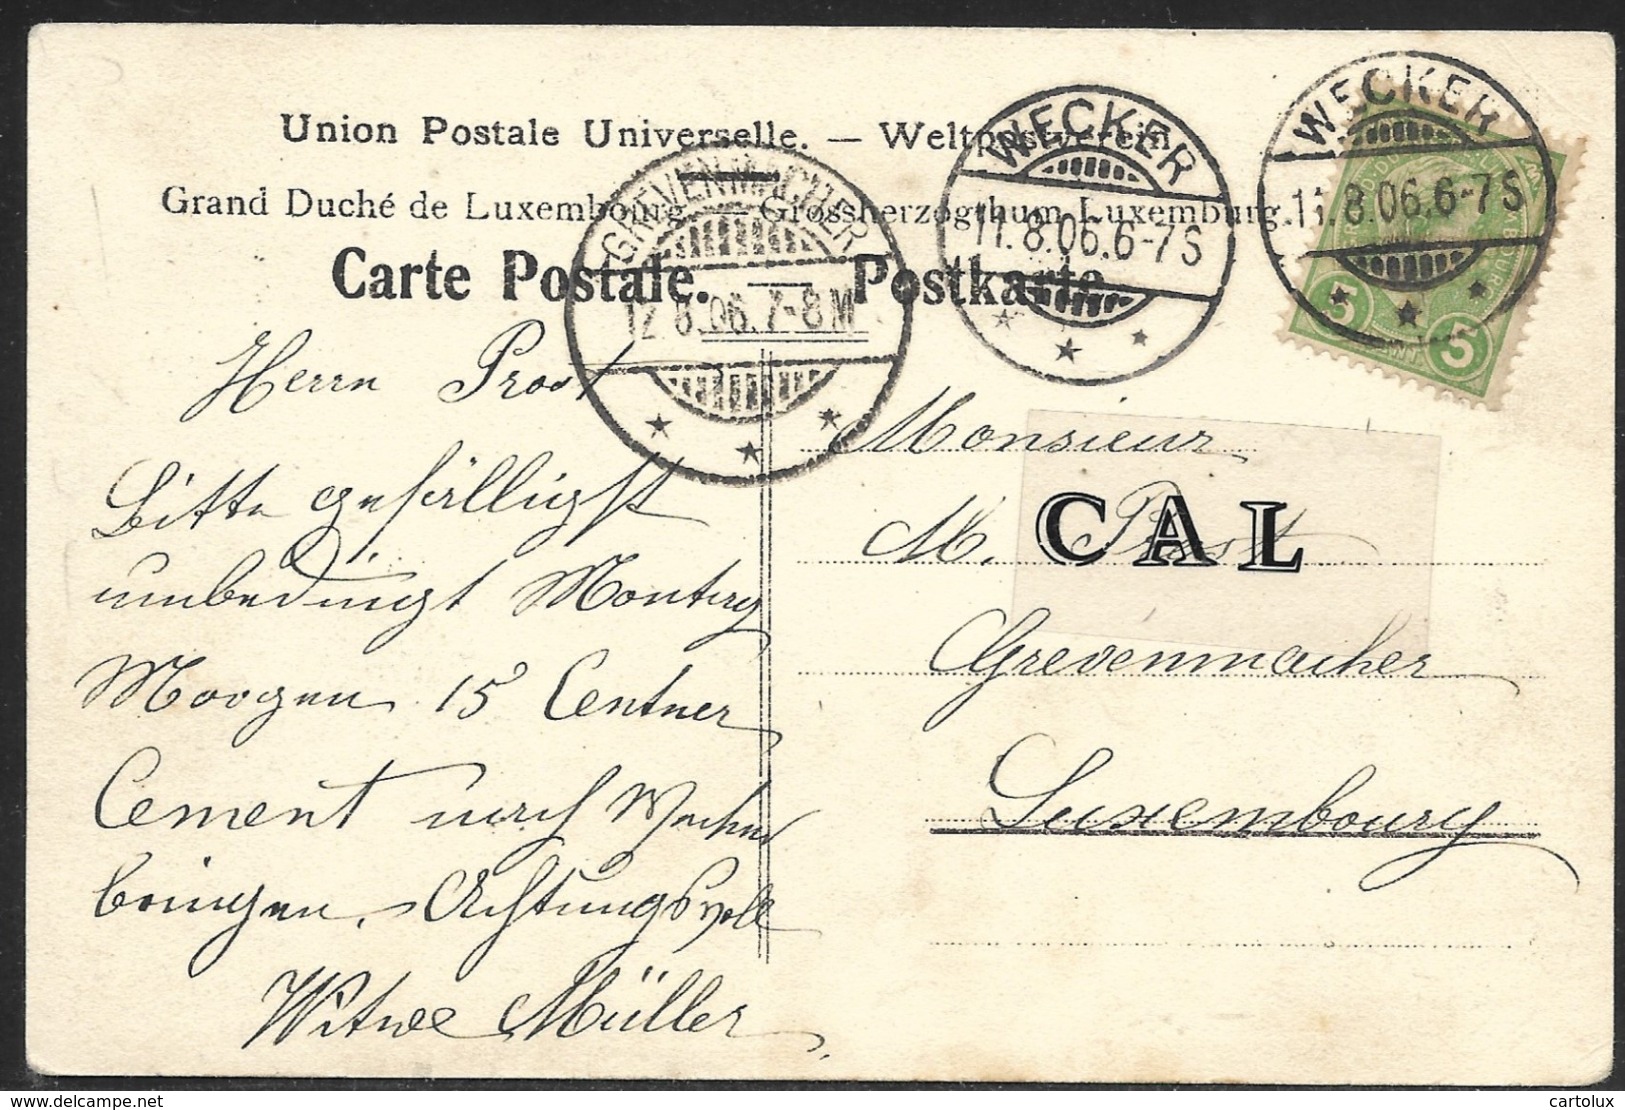 Union Postale Universelle. — Weltpostverein.
Grand Duché de Luxembourg. — Grossherzogthum Luxemburg.
Carte Postale. — Postkarte.
WECKER
11.8.06.6-7S
WECKER
11.8.06.6-7S
GREVENMACHER
12.8.06.7-8M
5 5
Herrn Prost
Bitte gefälligst
umbedingt Montag
Moorgen 15 Centner
Cement nach Wecker
bringen. Achtungsvoll
Witwe Müller
Monsieur
M. Prost
CAL
Grevenmacher
Luxembourg
delcampe.net
cartolux